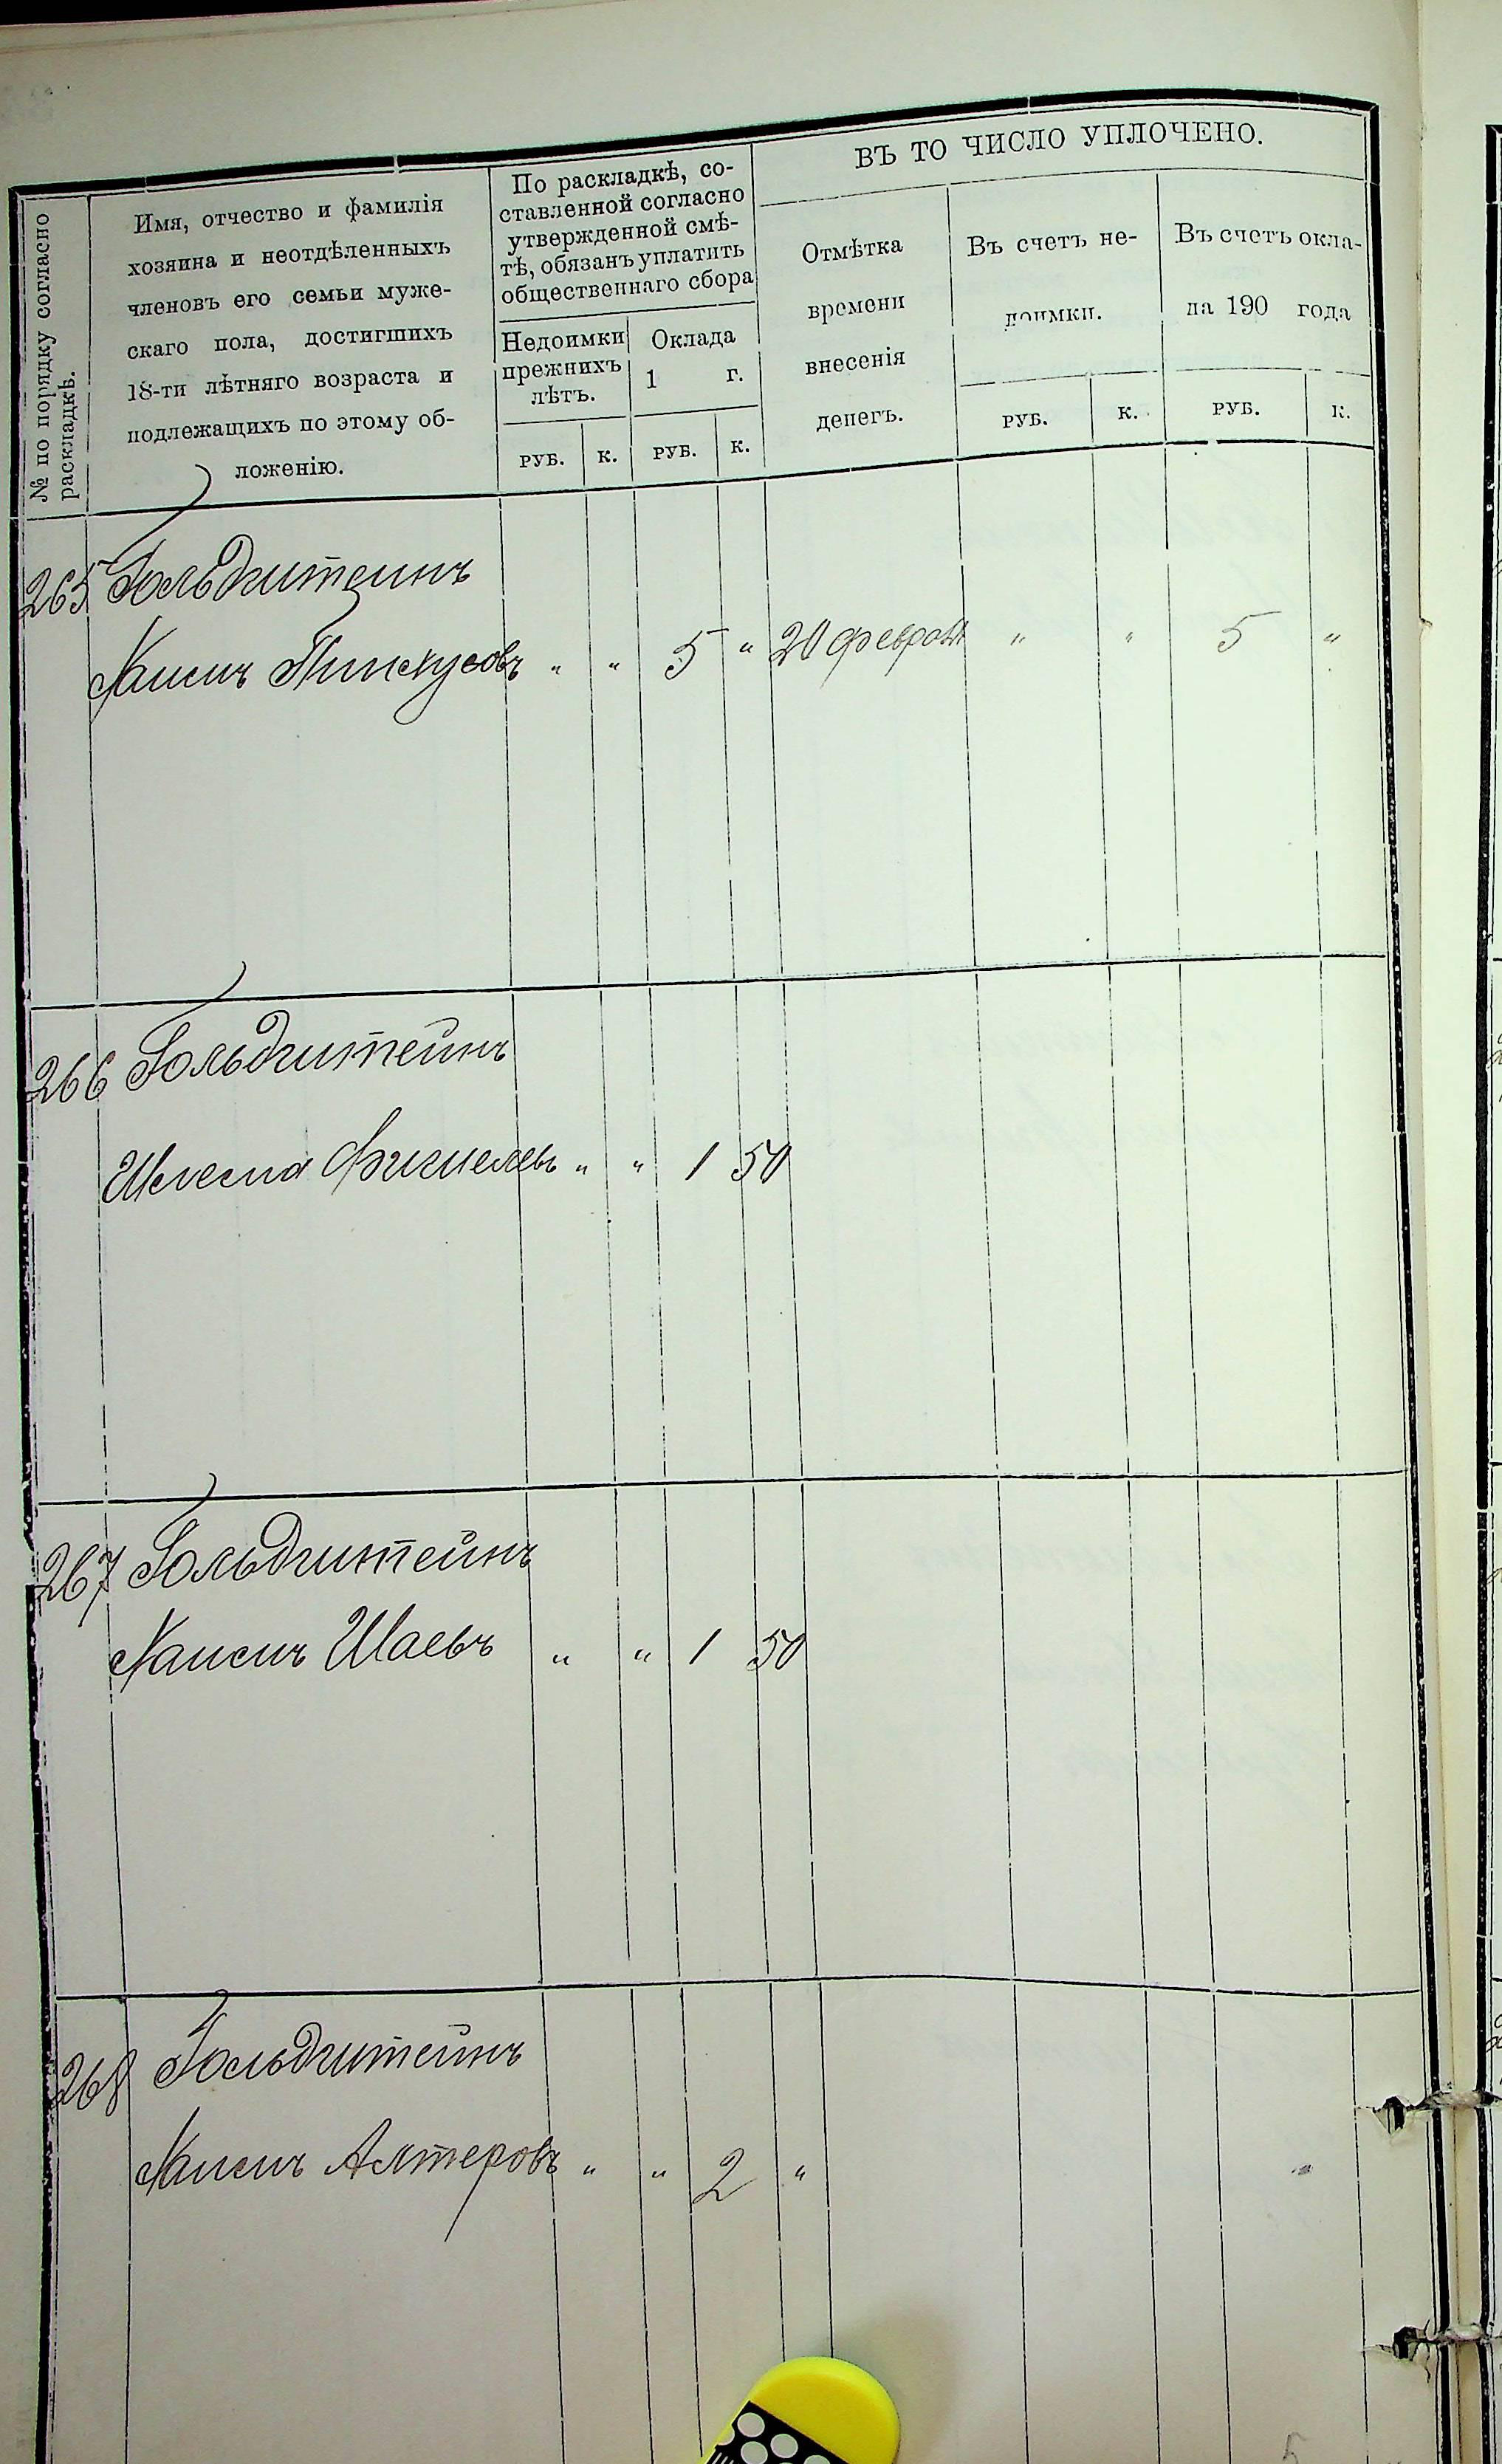 № по порядку согласно
раскладкѣ.
Имя, отчество и фамилія
хозяина и неотдѣленныхъ
членовъ его семьи муже-
скаго пола, достигшихъ
18-ти лѣтняго возраста и
подлежащихъ по этому об-
ложенію.
По раскладкѣ, со-
ставленной согласно
утвержденной смѣ-
тѣ, обязанъ уплатить
общественнаго сбора
Недоимки
прежнихъ
лѣтъ.
Оклада
1 г.
РУБ. К. РУБ. К.
ВЪ ТО ЧИСЛО УПЛОЧЕНО.
Отмѣтка
времени
внесенія
денегъ.
Въ счетъ не-
доимки.
РУБ. К.
Въ счетъ окла-
да 190 года
РУБ. К.
265 Гольдштейнъ
Хаимъ Пинхусовъ " " 5 " 20 февраля " " 5 "
266 Гольдштейнъ
Фишелевъ " " 1 50
267 Гольдштейнъ
Хаимъ Шаевъ " " 1 50
268 Гольдштейнъ
Хаимъ Алтеровъ " " 2 "